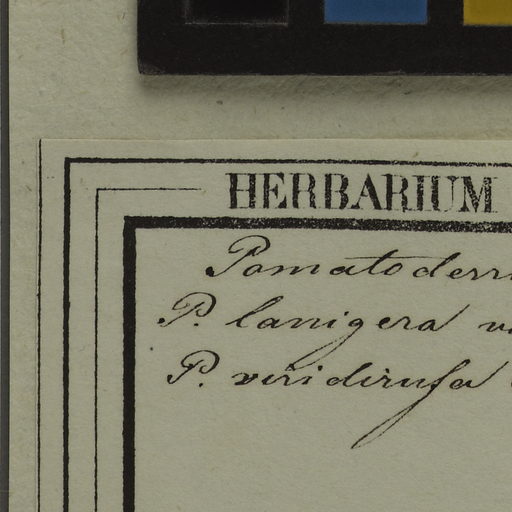 HERBARIUM
Pomatoderr
P. lanigera va
P. viridirufa